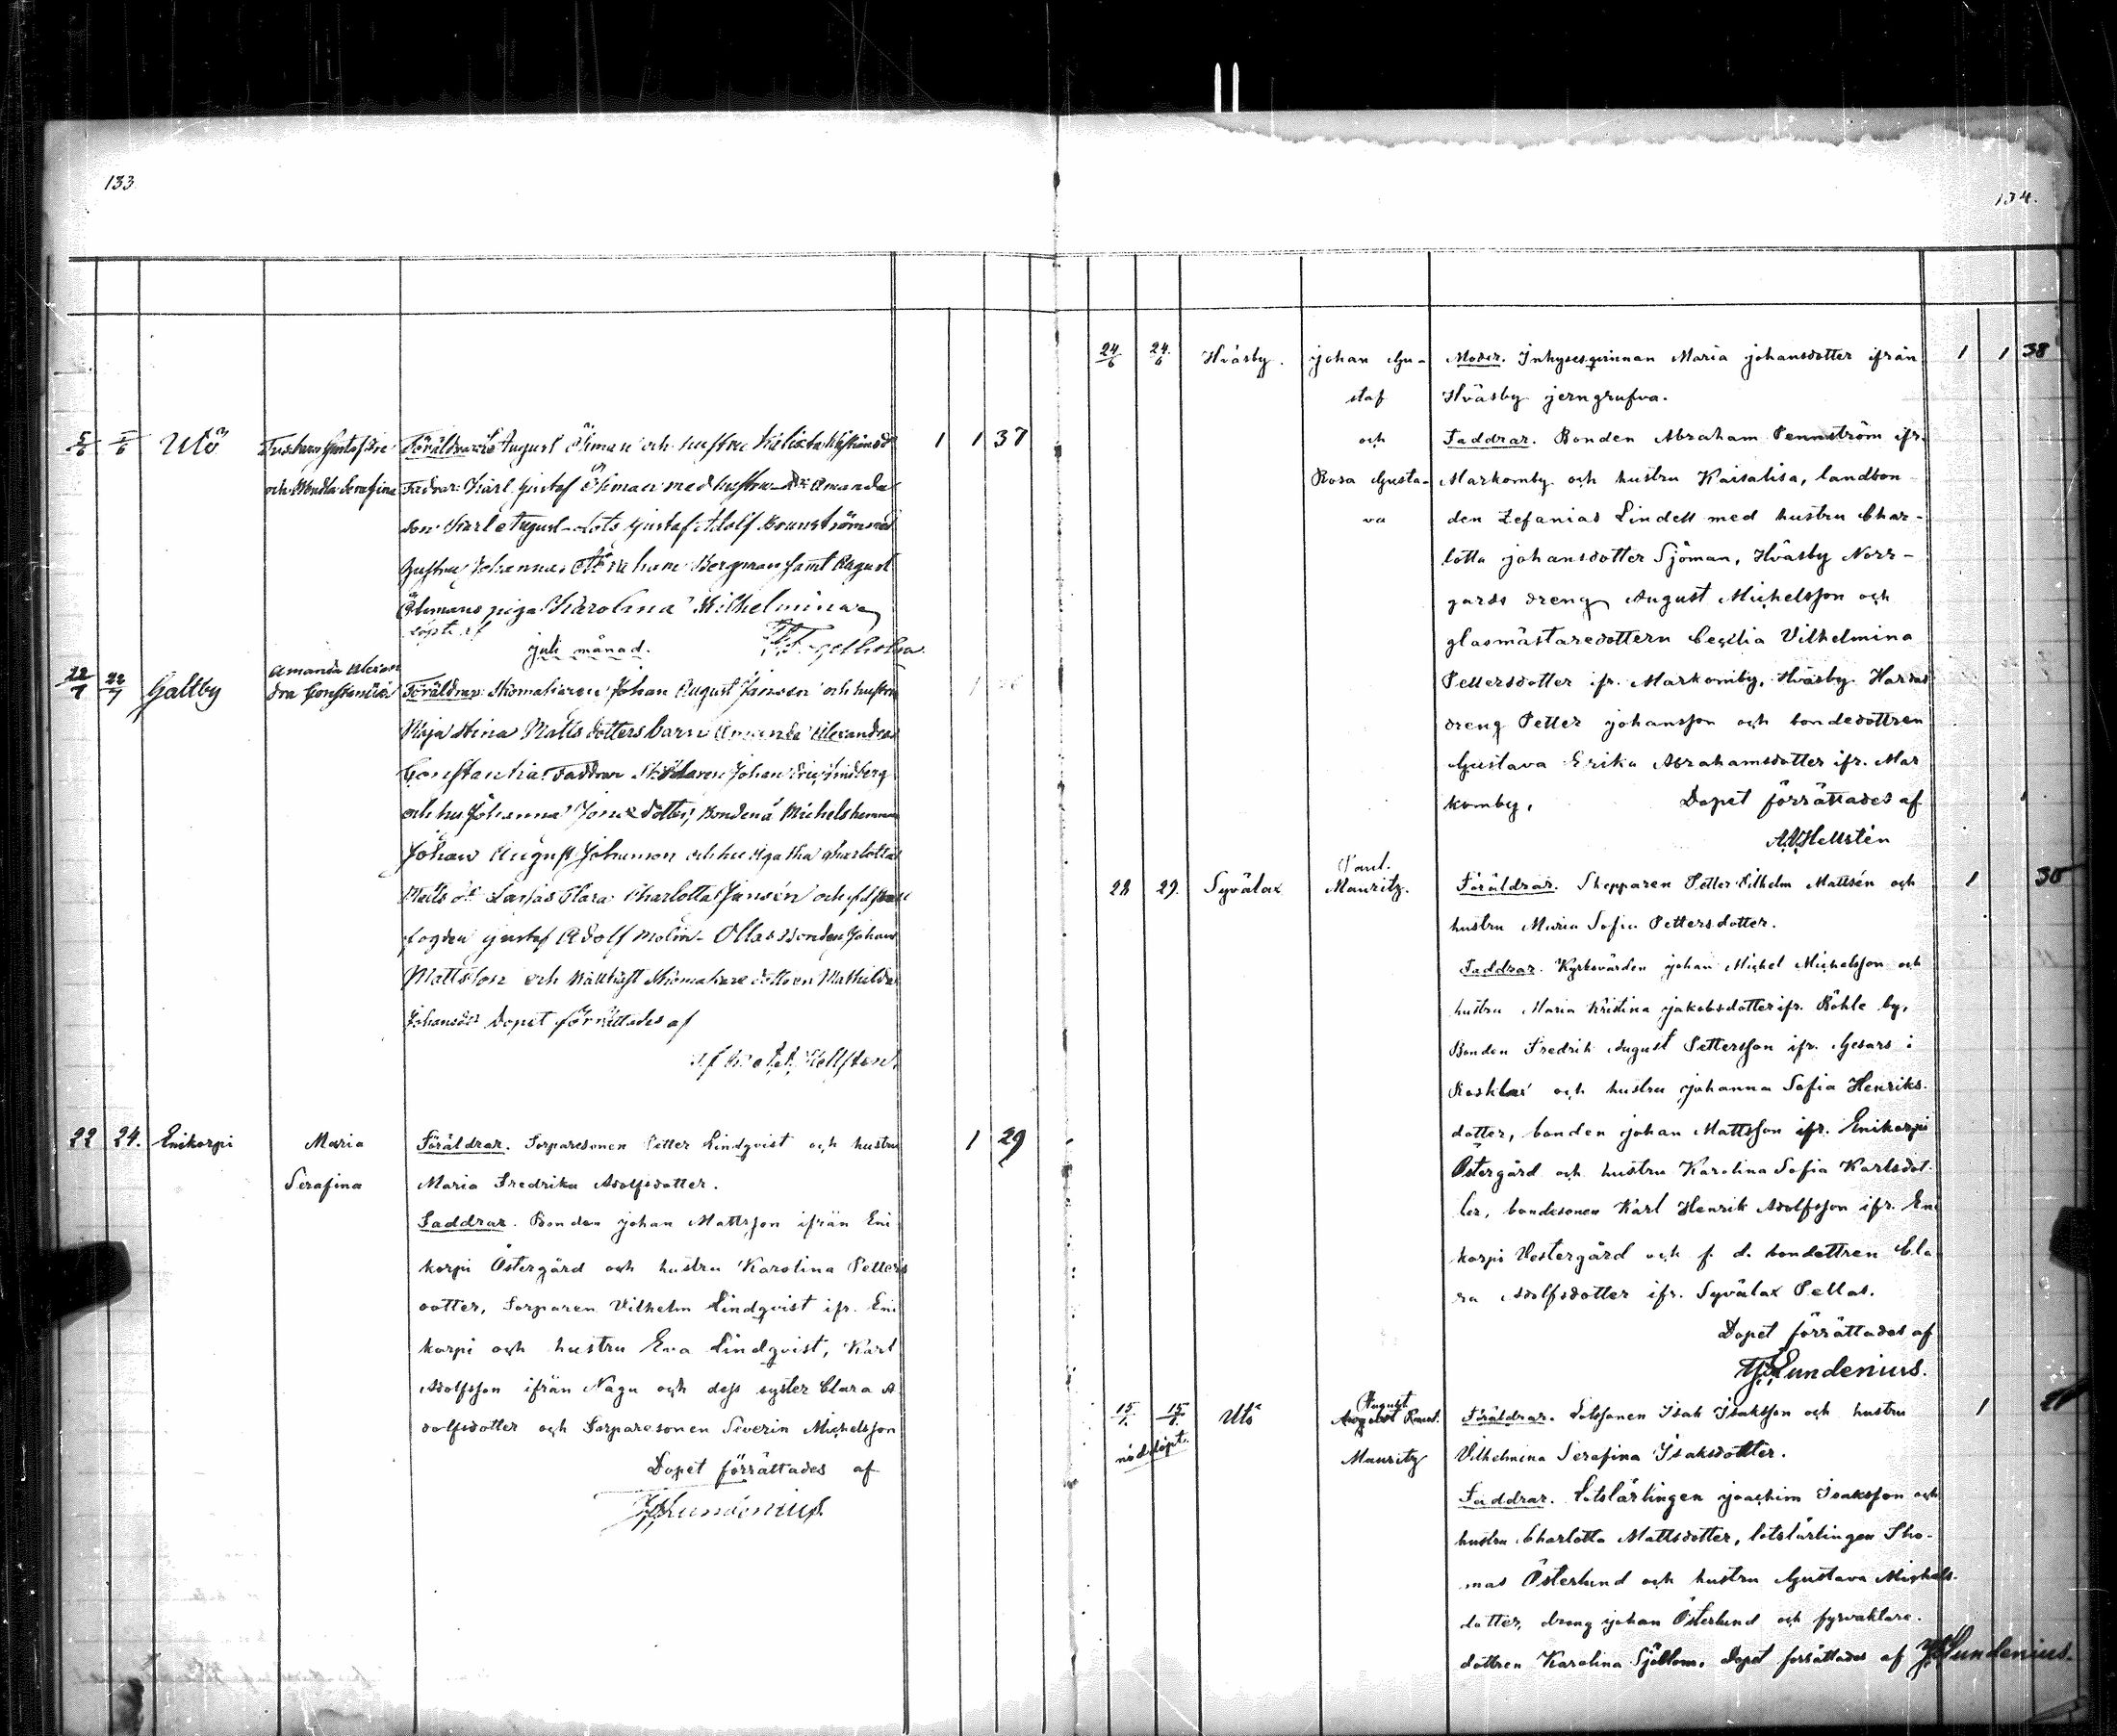 133
5/6 5/6 Utö Föräldrar August Öhman och hustru 1 1 37
och Serafina Fadrar: Karl Gustaf Öhman med hustru Amanda
son Karl August Lots Gustaf Adolf
hustru Johanna Bergman samt August
Öhmans piga Karolina Wilhelmina
döpt af
juli månad.
22/7 22/7 Galtby Amanda Alexan
dra Constantia Föräldrar Skomakaren Johan August Jansén och hustru
Maja Stina Matts dotters barn Amanda Alexandra
Constantia. Faddrar Johan Lindberg
och hu Johanna dotter, Bonden å Michels hemman
Johan August Johansson och hu Agatha Charlotta
Matts dr Clara Charlotta Jansén och
fogden Gustaf Adolf Molin Ollas Bonden Johan
Mattsson och Skomakare dottren Mathilda
Johansdr Dopet förrättades af
Hellsten
22 24. Enikorpi Maria Föräldrar. Torparesonen Petter Lindqvist och hustru 1 29
Serafina Maria Fredrika Adolfsdotter.
Faddrar. Bonden Johan Mattsson ifrån Eni
korpi Östergård och hustru Karolina Petters
dotter, Torparen Vilhelm Lindqvist ifr. Eni
korpi och hustru Eva Lindqvist, Karl
Adolfsson ifrån Nagu och dess syster Clara A
dolfsdotter och Torparesonen Severin Michelsson
Dopet förrättades af
Lundenius
134.
24/6 24/6 Hväsby. Johan Gu- Moder. Inhysesqvinnan Maria Johansdotter ifrån 1 1 38
staf Hväsby jerngrufva.
och Faddrar. Bonden Abraham Pennström ifr.
Rosa Gusta- Markomby och hustru Kaisalisa, landbon
va den Zefanias Lindell med hustru Char-
lotta Johansdotter Sjöman, Hväsby Norr-
gards dreng August Michelsson och
glasmästaredottern Cecilia Vilhelmina
Pettersdotter ifr. Markomby, Hväsby Hardas
dreng Petter Johansson och bondedottren
Gustava Erika Abrahamsdotter ifr. Mar
komby. Dopet förrättades af
Hellstén
28 29. Syvälax Paul. Mauritz. Föräldrar. Skepparen Petter Vilhelm Mattsén och 1
hustru Maria Sofia Pettersdotter.
Faddrar. Kyrkovärden Johan Michel Michelsson och
hustru Maria Kristina Jakobsdotter ifr. Röhle by,
Bonden Fredrik August Pettersson ifr. Gesars i
och hustru Johanna Sofia Henriks-
dotter, bonden Johan Mattsson ifr. Enikorpi
Östergård och hustru Karolina Sofia Karlsdot-
ter, bondesonen Karl Henrik Adolfsson ifr. Eni
korpi Vestergård och f. d. bondottren Cla
ra Adolfsdotter ifr. Syvälax Pellas.
Dopet förrättades af
Lundenius.
15/7 15/7 Utö August Föräldrar. Lotssonen Isak Isaksson och hustru 1
nöddöpt. Mauritz Vilhelmina Serafina Isaksdotter.
Faddrar. Lotslärlingen Joachim Isaksson och
hustru Charlotta Mattsdotter, lotslärlingen Tho-
mas Österlund och hustru Gustava Michels-
dotter, dreng Johan Österlund och fyrvaktare-
dottren Karolina Sjöblom. Dopet förrättades af Lundenius.